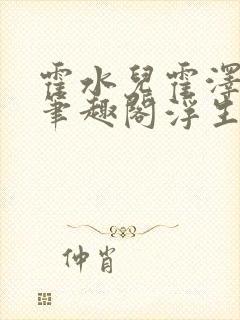 霍水兒霍澤
筆趣閣浮生
仲肖